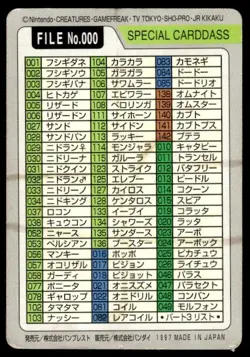 ©Nintendo・CREATURES・GAMEFREAK・TV TOKYO・SHO-PRO・JR KIKAKU
FILE No.000 SPECIAL CARDDASS
001 フシギダネ
002 フシギソウ
003 フシギバナ
004 ヒトカゲ
005 リザード
006 リザードン
027 サンド
028 サンドパン
029 ニドラン♀
030 ニドリーナ
031 ニドクイン
032 ニドラン♂
033 ニドリーノ
034 ニドキング
037 ロコン
038 キュウコン
052 ニャース
053 ペルシアン
056 マンキー
057 オコリザル
058 ガーディ
077 ポニータ
078 ギャロップ
102 タマタマ
103 ナッシー
104 カラカラ
105 ガラガラ
106 サワムラー
107 エビワラー
108 ベロリンガ
111 サイホーン
112 サイドン
113 ラッキー
114 モンジャラ
115 ガルーラ
127 カイロス
128 ケンタロス
133 イーブイ
134 シャワーズ
135 サンダース
136 ブースター
016 ポッポ
017 ピジョン
018 ピジョット
021 オニスズメ
022 オニドリル
081 コイル
082 レアコイル
083 カモネギ
084 ドードー
085 ドードリオ
138 オムナイト
139 オムスター
140 カブト
141 カブトプス
142 プテラ
010 キャタピー
011 トランセル
012 バタフリー
013 ビードル
014 コクーン
015 スピアー
019 コラッタ
020 ラッタ
023 アーボ
024 アーボック
025 ピカチュウ
026 ライチュウ
035 ピッピ
036 ピクシー
048 コンパン
049 モルフォン
・パート3リスト・
発売元／株式会社バンプレスト 製造元／株式会社バンダイ 1997 MADE IN JAPAN